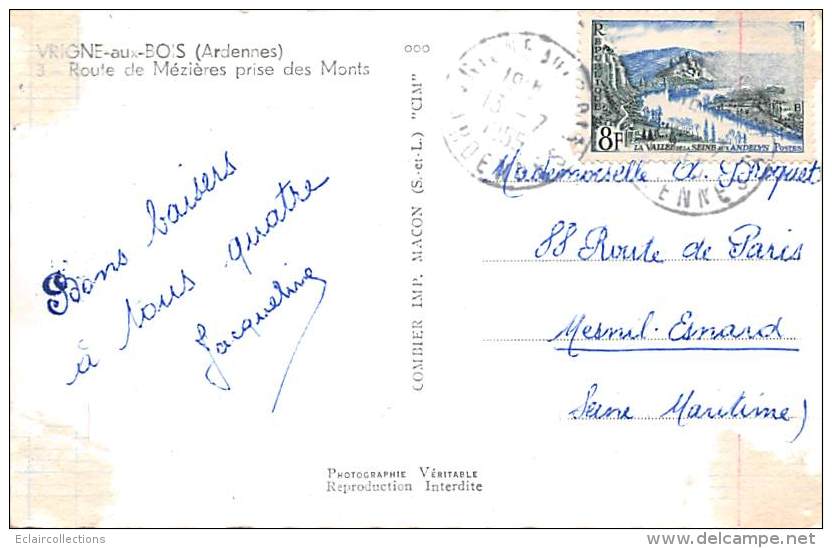 VRIGNE-aux-BOIS (Ardennes)
3 Route de Mézières prise des Monts
Bons baisers
à tous quatre
Jacqueline
COMBIER IMP. MACON (S.-et-L.) "CIM"
REPUBLIQUE
8F
LA VALLEE DE LA SEINE AUX ANDELYS POSTES
13 - 7
1955
Mademoiselle
88 Route de Paris
Mesnil-Esnard
Seine Maritime)
PHOTOGRAPHIE VÉRITABLE
Reproduction Interdite
Eclaircollections
delcampe.net